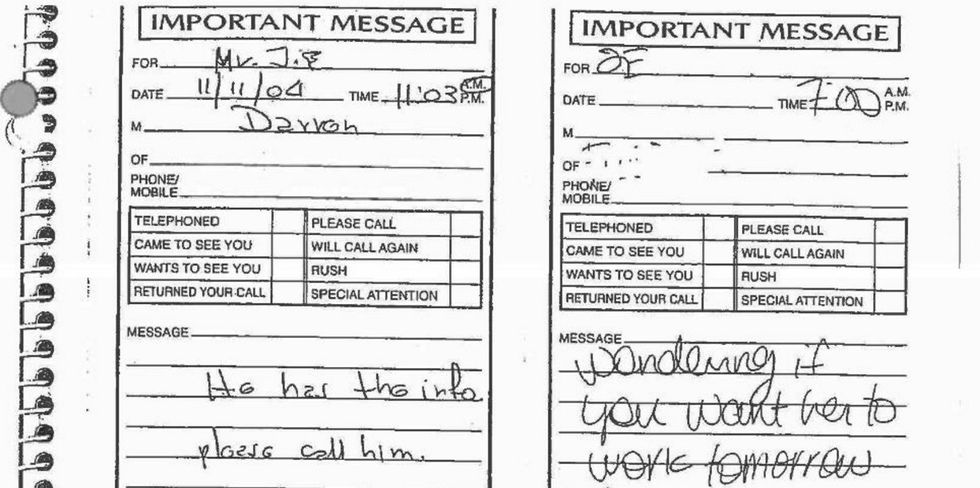 IMPORTANT MESSAGE
FOR Mr. J.E
DATE 11/11/04 TIME 11:03 A.M. P.M.
M Darren
OF
PHONE/
MOBILE
TELEPHONED PLEASE CALL
CAME TO SEE YOU WILL CALL AGAIN
WANTS TO SEE YOU RUSH
RETURNED YOUR CALL SPECIAL ATTENTION
MESSAGE
He has the info
please call him.
IMPORTANT MESSAGE
FOR JE
DATE TIME 7:00 A.M. P.M.
M
OF
PHONE/
MOBILE
TELEPHONED PLEASE CALL
CAME TO SEE YOU WILL CALL AGAIN
WANTS TO SEE YOU RUSH
RETURNED YOUR CALL SPECIAL ATTENTION
MESSAGE
wondering if
you want her to
work tomorrow